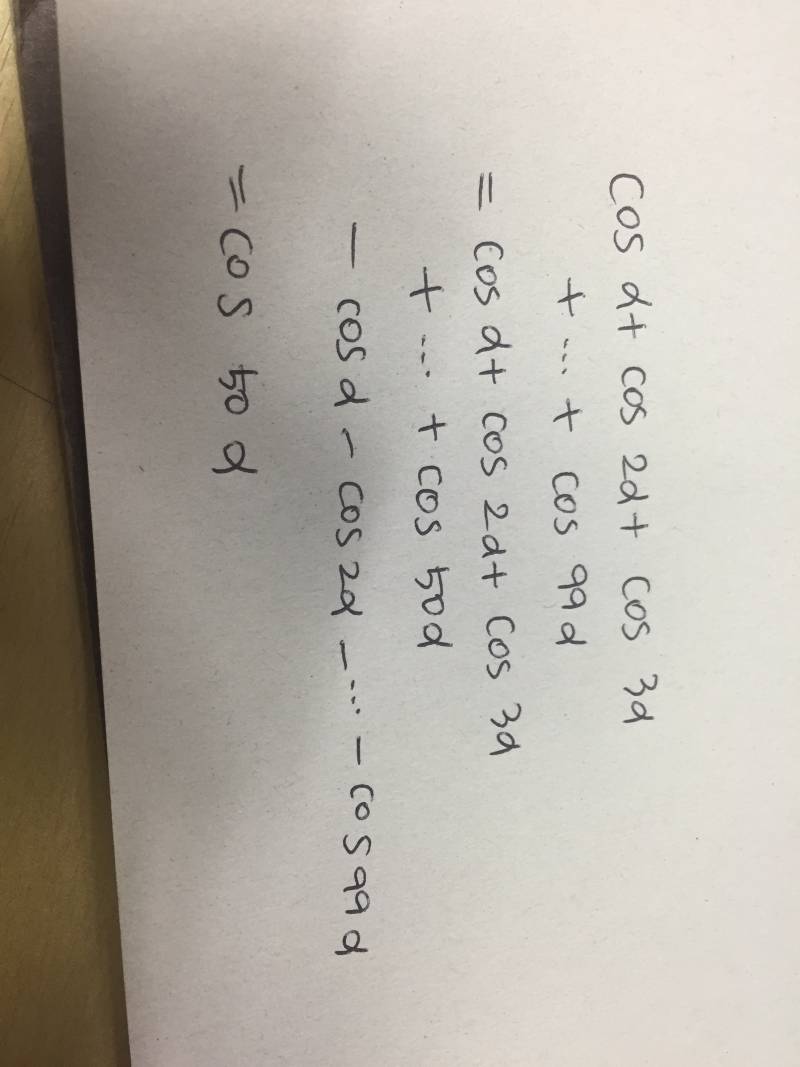 cos α + cos 2α + cos 3α
+ ... + cos 99α
= cos α + cos 2α + cos 3α
+ ... + cos 50α
- cos α - cos 2α - ... - cos 99α
= cos 50α